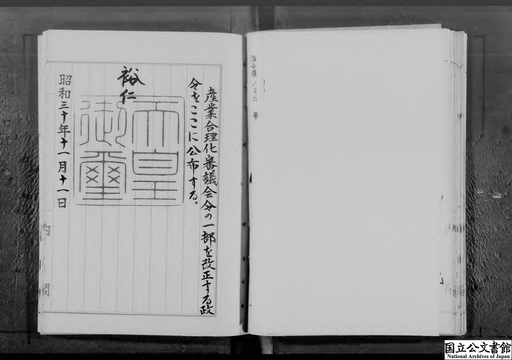 産業合理化審議会令の一部を改正する政
令をここに公布する。
裕仁
天皇
御璽
昭和三十年十一月十一日
内閣
国立公文書館
National Archives of Japan